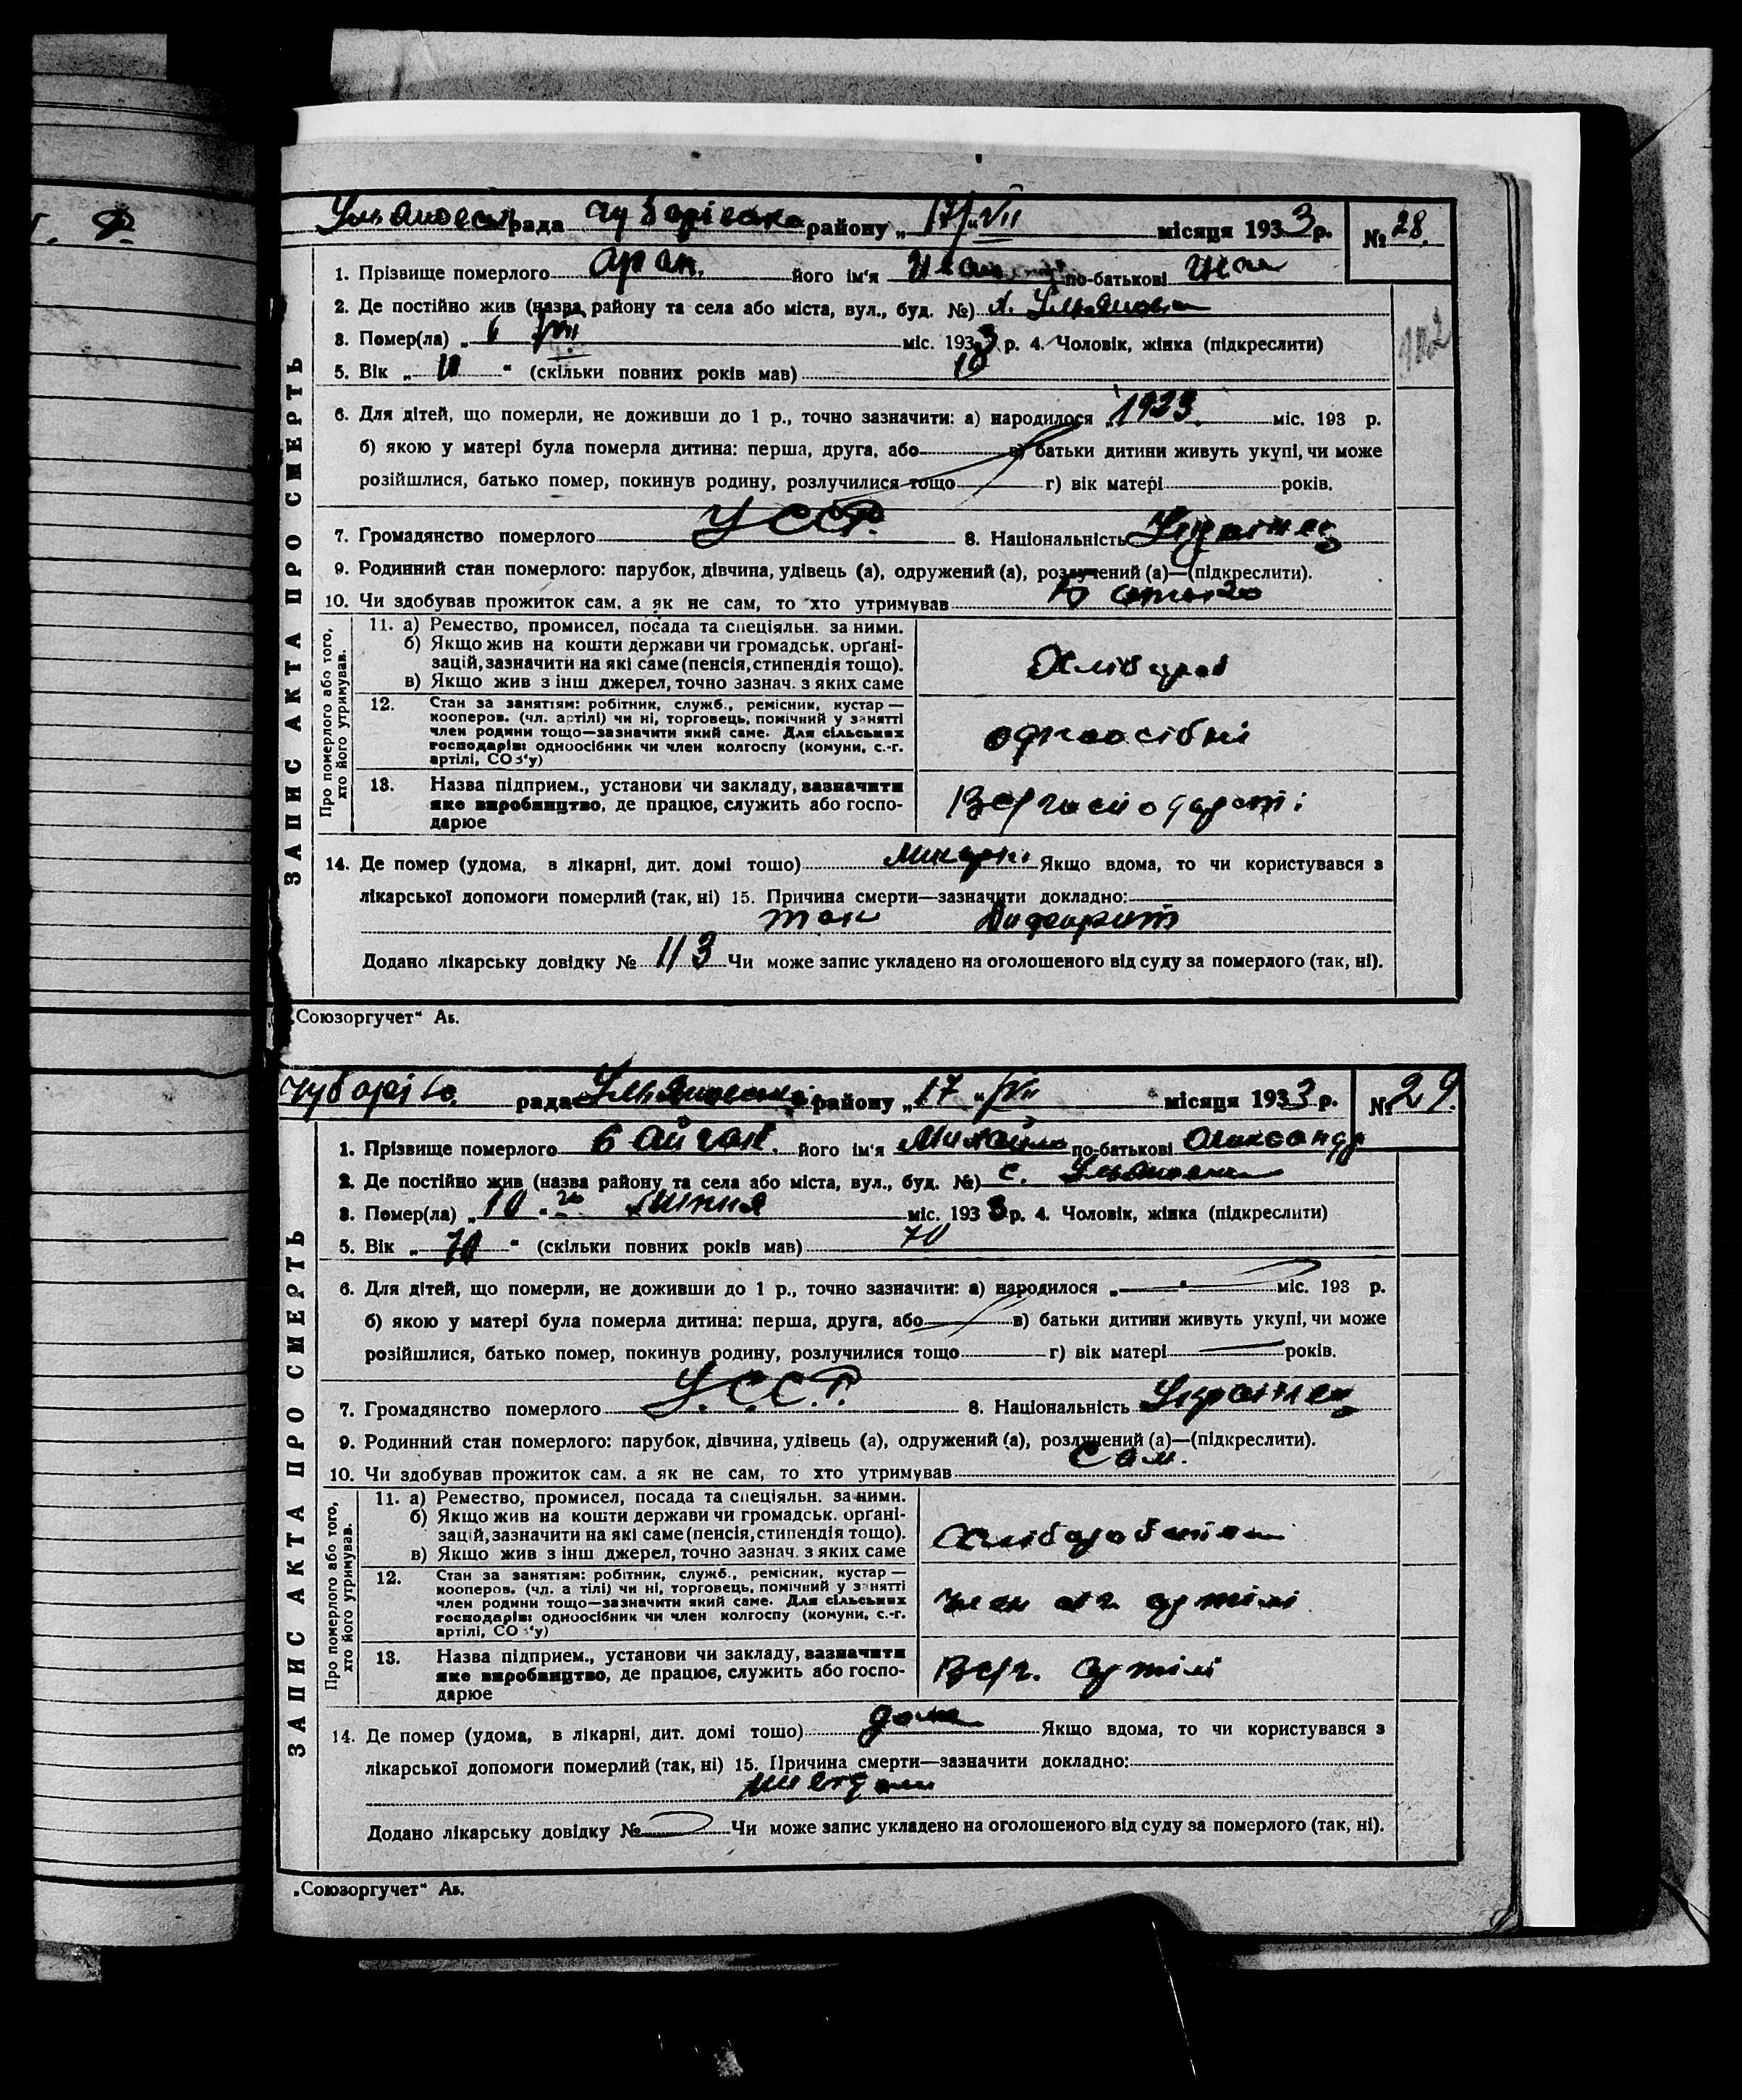 рада району „17/„VII місяця 1933 р. № 28.
1. Прізвище померлого його ім'я Иван по-батькові
2. Де постійно жив (назва району та села або міста, вул., буд. №)
3. Помер(ла) „ 6 VII міс. 1933 р. 4. Чоловік, жінка (підкреслити)
5. Вік „ 10 “ (скільки повних років мав) 10
6. Для дітей, що померли, не доживши до 1 р., точно зазначити: а) народилося „1923 міс. 193 р.
б) якою у матері була померла дитина: перша, друга, або в) батьки дитини живуть укупі, чи може
розійшлися, батько помер, покинув родину, розлучилися тощо г) вік матері років.
7. Громадянство померлого УССР. 8. Національність Українец
9. Родинний стан померлого: парубок, дівчина, удівець (а), одружений (а), розлучений (а)—(підкреслити).
10. Чи здобував прожиток сам, а як не сам, то хто утримував батько
ЗАПИС АКТА ПРО СМЕРТЬ
Про померлого або того, хто його утримував.
11. а) Ремество, промисел, посада та спеціяльн. за ними.
б) Якщо жив на кошти держави чи громадськ. орґані-
зацій, зазначити на які саме (пенсія, стипендія тощо).
в) Якщо жив з інш джерел, точно зазнач. з яких саме
12. Стан за занятіям: робітник, служб., ремісник, кустар —
кооперов. (чл. артілі) чи ні, торговець, помічний у занятті
член родини тощо—зазначити який саме. Для сільських
господарів: одноосібник чи член колгоспу (комуни, с.-г.
артілі, СОЗ'у)
одноосібні
13. Назва підприєм., установи чи закладу, зазначити
яке виробництво, де працює, служить або госпо-
дарює
14. Де помер (удома, в лікарні, дит. домі тощо) Якщо вдома, то чи користувався з
лікарської допомоги померлий (так, ні) 15. Причина смерти—зазначити докладно:
так
Додано лікарську довідку № 113 Чи може запис укладено на оголошеного від суду за померлого (так, ні).
„Союзоргучет“ Аб.
рада району „17 „VII місяця 1933 р. № 29.
1. Прізвище померлого Байган. його ім'я Михайло по-батькові Олександр
2. Де постійно жив (назва району та села або міста, вул., буд. №) с.
3. Помер(ла) „10“ го липня міс. 1933 р. 4. Чоловік, жінка (підкреслити)
5. Вік „ 70 “ (скільки повних років мав) 70
6. Для дітей, що померли, не доживши до 1 р., точно зазначити: а) народилося „ “ міс. 193 р.
б) якою у матері була померла дитина: перша, друга, або в) батьки дитини живуть укупі, чи може
розійшлися, батько помер, покинув родину, розлучилися тощо г) вік матері років.
7. Громадянство померлого У.С.С.Р. 8. Національність Українец
9. Родинний стан померлого: парубок, дівчина, удівець (а), одружений (а), розлучений (а)—(підкреслити).
10. Чи здобував прожиток сам, а як не сам, то хто утримував Сам.
ЗАПИС АКТА ПРО СМЕРТЬ
Про померлого або того, хто його утримував.
11. а) Ремество, промисел, посада та спеціяльн. за ними.
б) Якщо жив на кошти держави чи громадськ. орґані-
зацій, зазначити на які саме (пенсія, стипендія тощо).
в) Якщо жив з інш джерел, точно зазнач. з яких саме
12. Стан за занятіям: робітник, служб., ремісник, кустар —
кооперов. (чл. а тілі) чи ні, торговець, помічний у занятті
член родини тощо—зазначити який саме. Для сільських
господарів: одноосібник чи член колгоспу (комуни, с.-г.
артілі, СОЗ'у)
член артілі
13. Назва підприєм., установи чи закладу, зазначити
яке виробництво, де працює, служить або госпо-
дарює
артілі
14. Де помер (удома, в лікарні, дит. домі тощо) дома Якщо вдома, то чи користувався з
лікарської допомоги померлий (так, ні) 15. Причина смерти—зазначити докладно:
Додано лікарську довідку № Чи може запис укладено на оголошеного від суду за померлого (так, ні).
„Союзоргучет“ Аб.